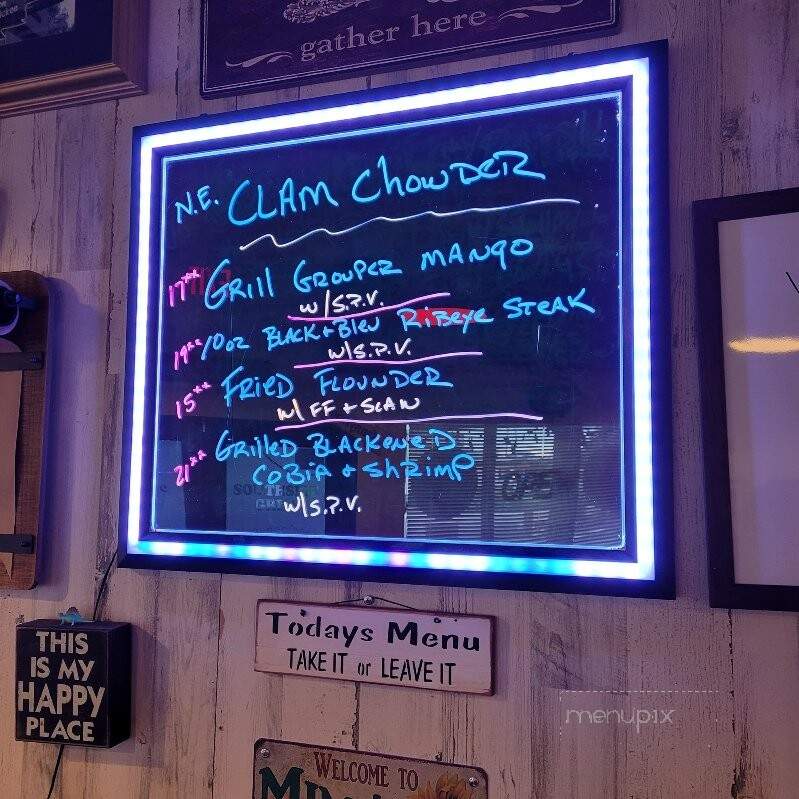 gather here
N.E. CLAM CHOWDER
17** GRIll GROUPER MANGO
w/S.P.V.
19** 10oz BLACK + BlEU RiBEYE STEAK
w/S.P.V.
15** FRIED FLOUNDER
w/ FF + SLAW
21** GRILLED BLACKENED
COBIA + SHRIMP
w/S.P.V.
OPEN
THIS
IS MY
HAPPY
PLACE
Todays Menu
TAKE IT or LEAVE IT
WELCOME TO
menupix